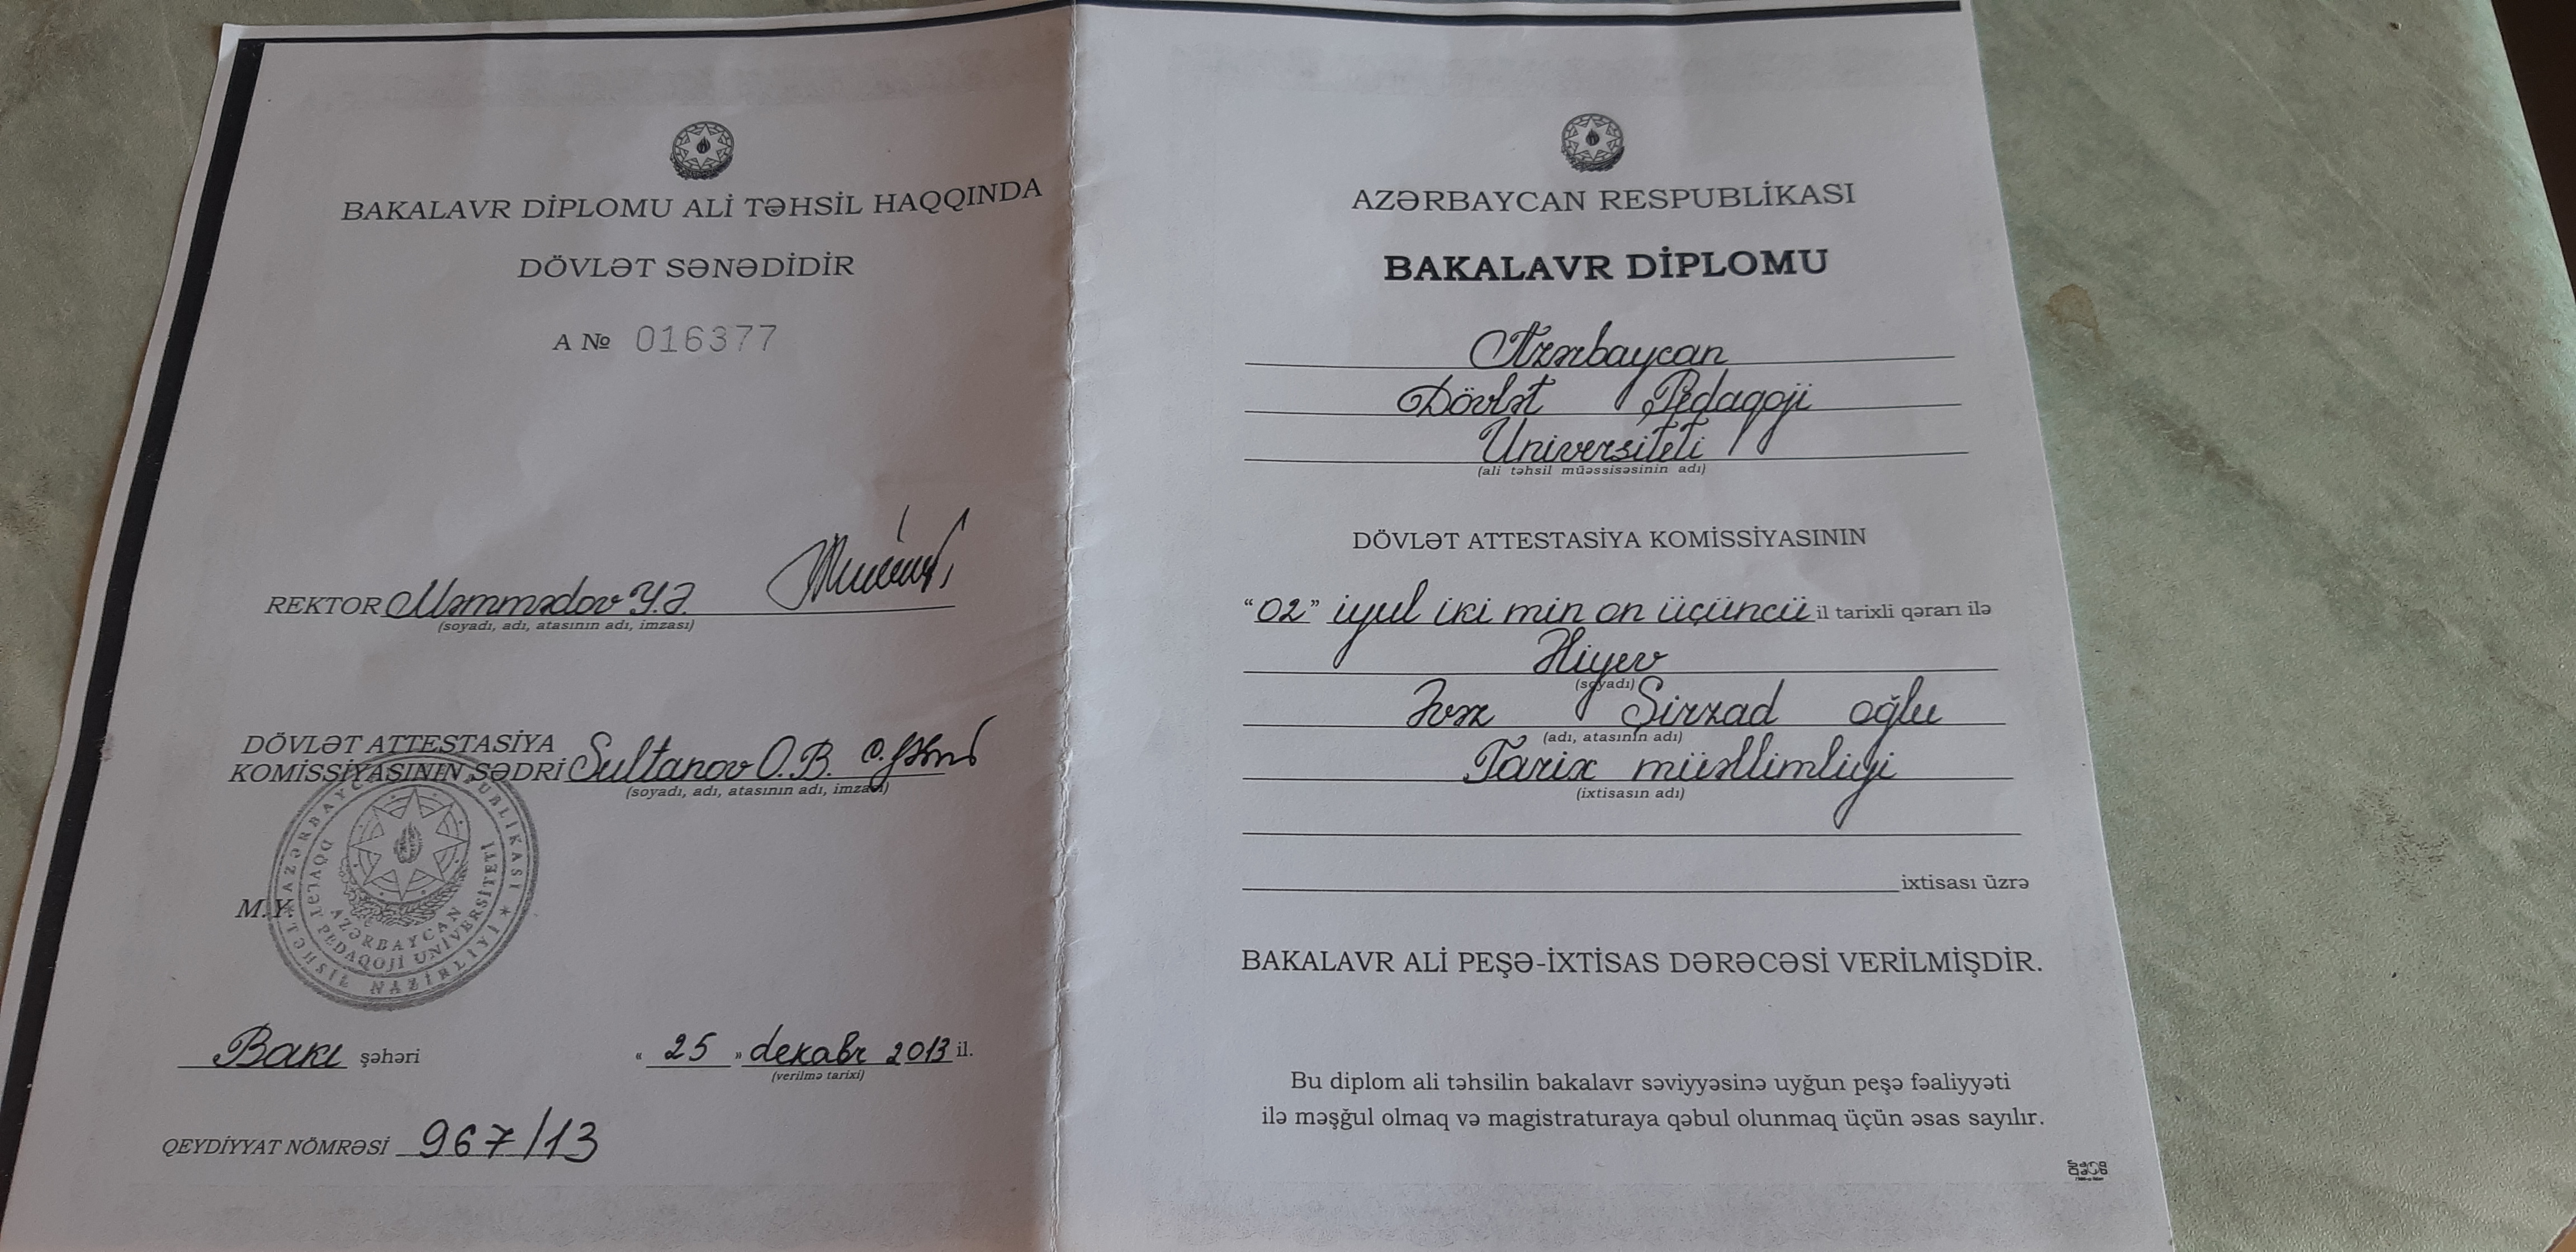 BAKALAVR DİPLOMU ALİ TƏHSİL HAQQINDA
DÖVLƏT SƏNƏDİDİR
A № 016377
REKTOR Məmmədov Y.Ə.
(soyadı, adı, atasının adı, imzası)
DÖVLƏT ATTESTASİYA
KOMİSSİYASININ SƏDRİ Sultanov O.B.
(soyadı, adı, atasının adı, imzası)
AZƏRBAYCAN RESPUBLİKASI * TƏHSİL NAZİRLİYİ *
AZƏRBAYCAN DÖVLƏT PEDAQOJİ UNİVERSİTETİ
M.Y.
Bakı şəhəri
" 25 " dekabr 2013 il.
(verilmə tarixi)
QEYDİYYAT NÖMRƏSİ 967/13
AZƏRBAYCAN RESPUBLİKASI
BAKALAVR DİPLOMU
Azərbaycan
Dövlət Pedaqoji
Universiteti
(ali təhsil müəssisəsinin adı)
DÖVLƏT ATTESTASİYA KOMİSSİYASININ
"02" iyul iki min on üçüncü il tarixli qərarı ilə
Əliyev
(soyadı)
Əvəz Şirzad oğlu
(adı, atasının adı)
Tarix müəllimliyi
(ixtisasın adı)
ixtisası üzrə
BAKALAVR ALİ PEŞƏ-İXTİSAS DƏRƏCƏSİ VERİLMİŞDİR.
Bu diplom ali təhsilin bakalavr səviyyəsinə uyğun peşə fəaliyyəti
ilə məşğul olmaq və magistraturaya qəbul olunmaq üçün əsas sayılır.